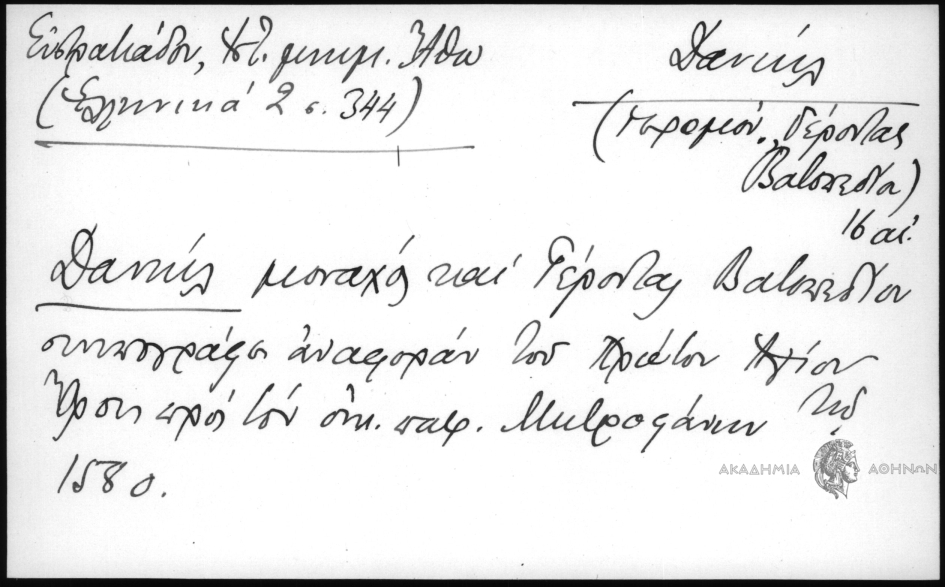 Εὐστρατιάδου, Ἱστ. μνημ. Ἄθω
(Ἑλληνικά 2 σ. 344)
Δανιήλ
(ἱερομόν., Γέροντας
Βατοπεδίου)
16 αἰ.
Δανιήλ μοναχός καί Γέροντας Βατοπεδίου
συνυπογράφει ἀναφοράν τοῦ Πρώτου Ἁγίου
Ὄρους πρός τόν οἰκ. πατρ. Μητροφάνην τῷ
1580.
ΑΚΑΔΗΜΙΑ ΑΘΗΝΩΝ